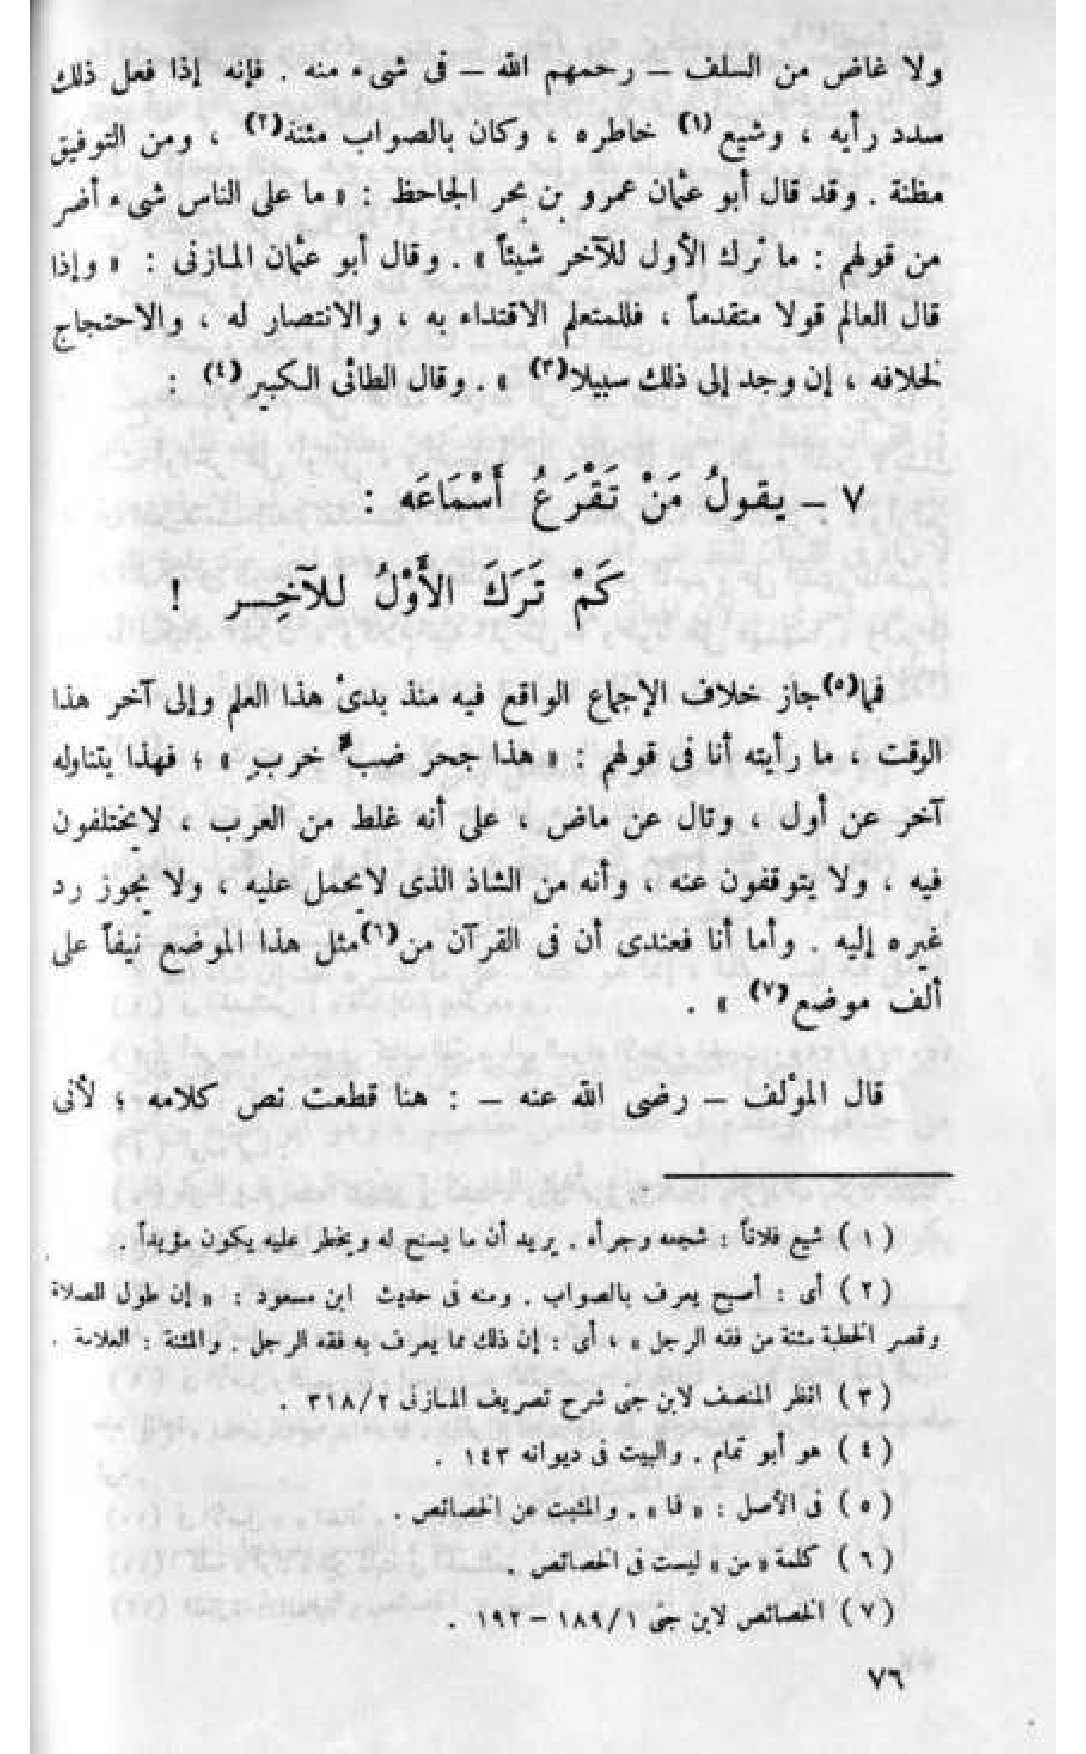 ولا غاض من السلف – رحمهم الله – فى شىء منه . فإنه إذا فعل ذلك
سدد رأيه ، وشيع(١) خاطره ، وكان بالصواب مئنة(٢) ، ومن التوفيق
مظنة . وقد قال أبو عثمان عمرو بن بحر الجاحظ : « ما على الناس شىء أضر
من قولهم : ما ترك الأول للآخر شيئاً » . وقال أبو عثمان المازنى : « وإذا
قال العالم قولا متقدماً ، فللمتعلم الاقتداء به ، والانتصار له ، والاحتجاج
لخلافه ، إن وجد إلى ذلك سبيلا(٣) » . وقال الطائى الكبير(٤) :
٧ – يقولُ مَنْ تَقْرَعُ أَسْمَاعَه :
كَمْ تَرَكَ الأَوْلُ للآخِـــر !
فما(٥) جاز خلاف الإجماع الواقع فيه منذ بدئ هذا العلم وإلى آخر هذا
الوقت ، ما رأيته أنا فى قولهم : « هذا جحر ضب خربٍ » ؛ فهذا يتناوله
آخر عن أول ، وتال عن ماض ، على أنه غلط من العرب ، لايختلفون
فيه ، ولا يتوقفون عنه ، وأنه من الشاذ الذى لايحمل عليه ، ولا يجوز رد
غيره إليه . وأما أنا فعندى أن فى القرآن من(٦) مثل هذا الموضع نيفاً على
ألف موضع(٧) » .
قال المؤلف – رضى الله عنه – : هنا قطعت نص كلامه ؛ لأنى
( ١ ) شيع فلاناً : شجعه وجرأه . يريد أن ما يسنح له ويخطر عليه يكون مؤيداً .
( ٢ ) أى : أصبح يعرف بالصواب . ومنه فى حديث ابن مسعود : « إن طول الصلاة
وقصر الخطبة مئنة من فقه الرجل » ، أى : إن ذلك مما يعرف به فقه الرجل . والمئنة : العلامة .
( ٣ ) انظر المنصف لابن جنى شرح تصريف المازنى ٣١٨/٢ .
( ٤ ) هو أبو تمام . والبيت فى ديوانه ١٤٣ .
( ٥ ) فى الأصل : « فا » . والمثبت عن الخصائص .
( ٦ ) كلمة « من » ليست فى الخصائص .
( ٧ ) الخصائص لابن جنى ١٨٩/١ – ١٩٢ .
٧٦